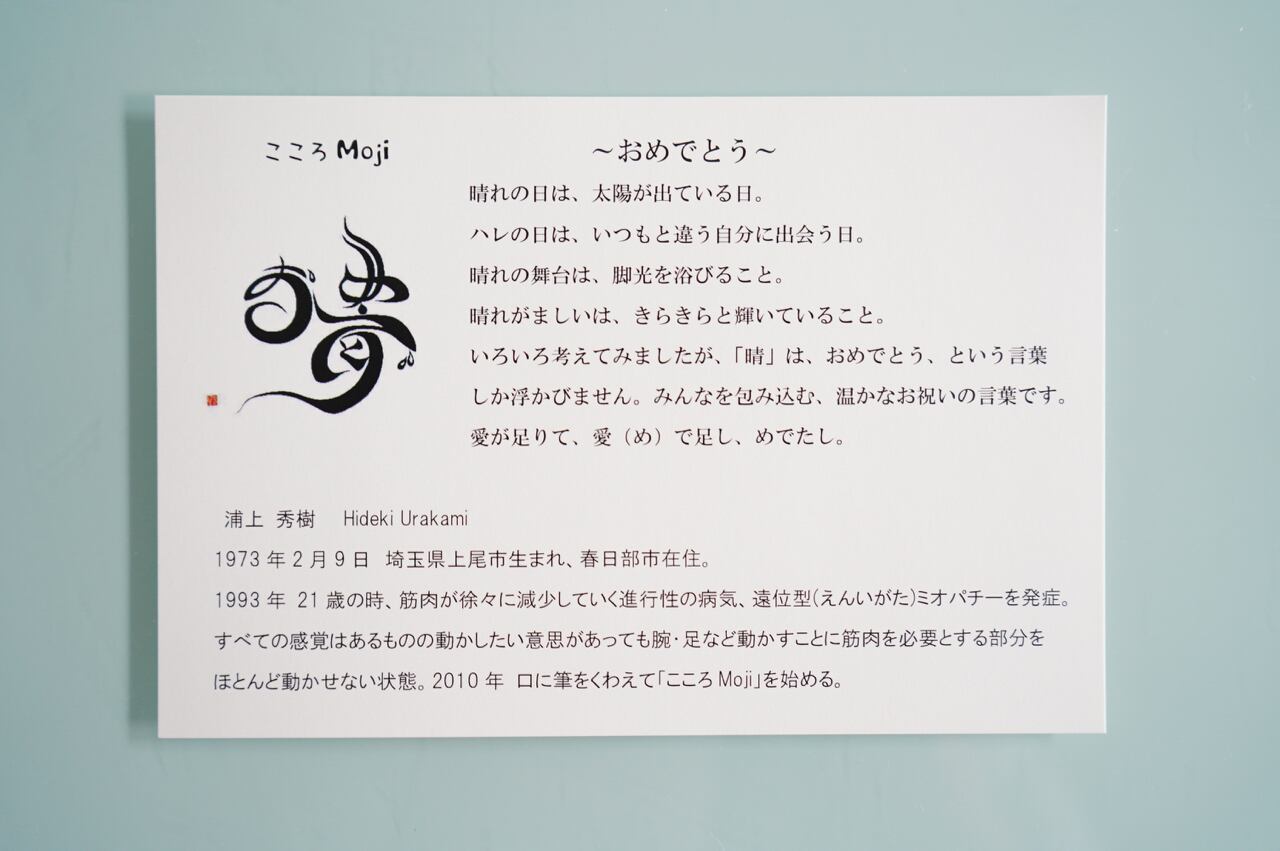 こころ Moji
～おめでとう～
晴れの日は、太陽が出ている日。
ハレの日は、いつもと違う自分に出会う日。
晴れの舞台は、脚光を浴びること。
晴れがましいは、きらきらと輝いていること。
いろいろ考えてみましたが、「晴」は、おめでとう、という言葉
しか浮かびません。みんなを包み込む、温かなお祝いの言葉です。
愛が足りて、愛（め）で足し、めでたし。
浦上 秀樹 Hideki Urakami
1973年2月9日 埼玉県上尾市生まれ、春日部市在住。
1993年 21歳の時、筋肉が徐々に減少していく進行性の病気、遠位型(えんいがた)ミオパチーを発症。
すべての感覚はあるものの動かしたい意思があっても腕・足など動かすことに筋肉を必要とする部分を
ほとんど動かせない状態。2010年 口に筆をくわえて「こころMoji」を始める。